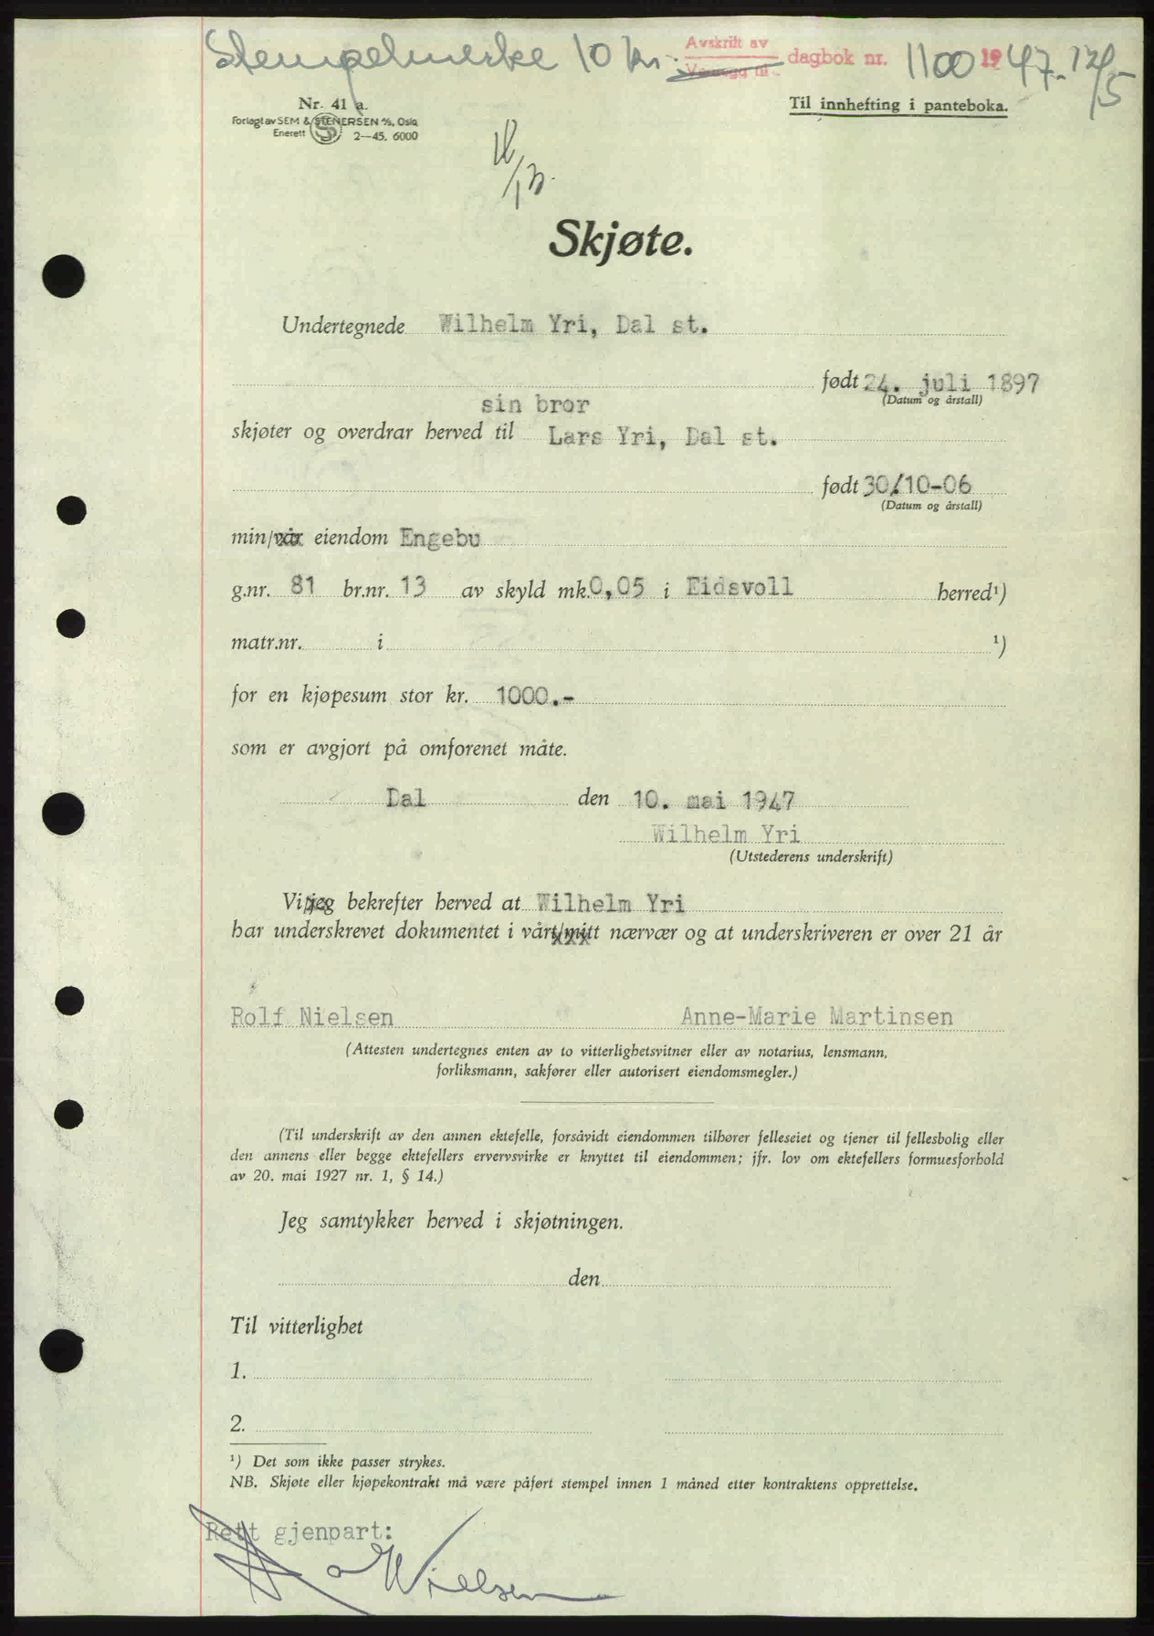 Stempelmerke 10 kr. Avskrift av dagbok nr. 1100 1947. 12/5
Vedlegg til
Nr. 41 a.
Forlagt av SEM & STENERSEN A/S, Oslo
Enerett 2—45. 6000
Til innhefting i panteboka.
Skjøte.
Undertegnede Wilhelm Yri, Dal st.
født 24. juli 1897
(Datum og årstall)
sin bror
skjøter og overdrar herved til Lars Yri, Dal st.
født 30/10-06
(Datum og årstall)
min/vår eiendom Engebu
g.nr. 81 br.nr. 13 av skyld mk. 0,05 i Eidsvoll herred¹)
matr.nr. i ¹)
for en kjøpesum stor kr. 1000.-
som er avgjort på omforenet måte.
Dal den 10. mai 1947
Wilhelm Yri
(Utstederens underskrift)
Vi/jeg bekrefter herved at Wilhelm Yri
har underskrevet dokumentet i vårt/mitt nærvær og at underskriveren er over 21 år
Rolf Nielsen Anne-Marie Martinsen
(Attesten undertegnes enten av to vitterlighetsvitner eller av notarius, lensmann,
forliksmann, sakfører eller autorisert eiendomsmegler.)
(Til underskrift av den annen ektefelle, forsåvidt eiendommen tilhører felleseiet og tjener til fellesbolig eller
den annens eller begge ektefellers ervervsvirke er knyttet til eiendommen; jfr. lov om ektefellers formuesforhold
av 20. mai 1927 nr. 1, § 14.)
Jeg samtykker herved i skjøtningen.
den
Til vitterlighet
1.
2.
¹) Det som ikke passer strykes.
NB. Skjøte eller kjøpekontrakt må være påført stempel innen 1 måned etter kontraktens opprettelse.
Rett gjenpart: